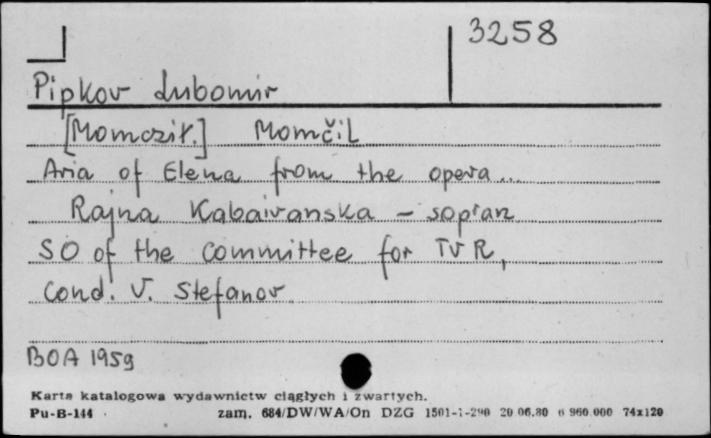 3258
Pipkov Lubomir
[Momcził.] Momčil
Aria of Elena from the opera...
Rajna Kabaivanska - sopran
SO of the committee for TVR,
cond. V. Stefanov
BOA 1959
Karta katalogowa wydawnictw ciągłych i zwartych.
Pu-B-144 zam. 684/DW/WA/On DZG 1501-1-290 20 06.80 6 960.000 74x120